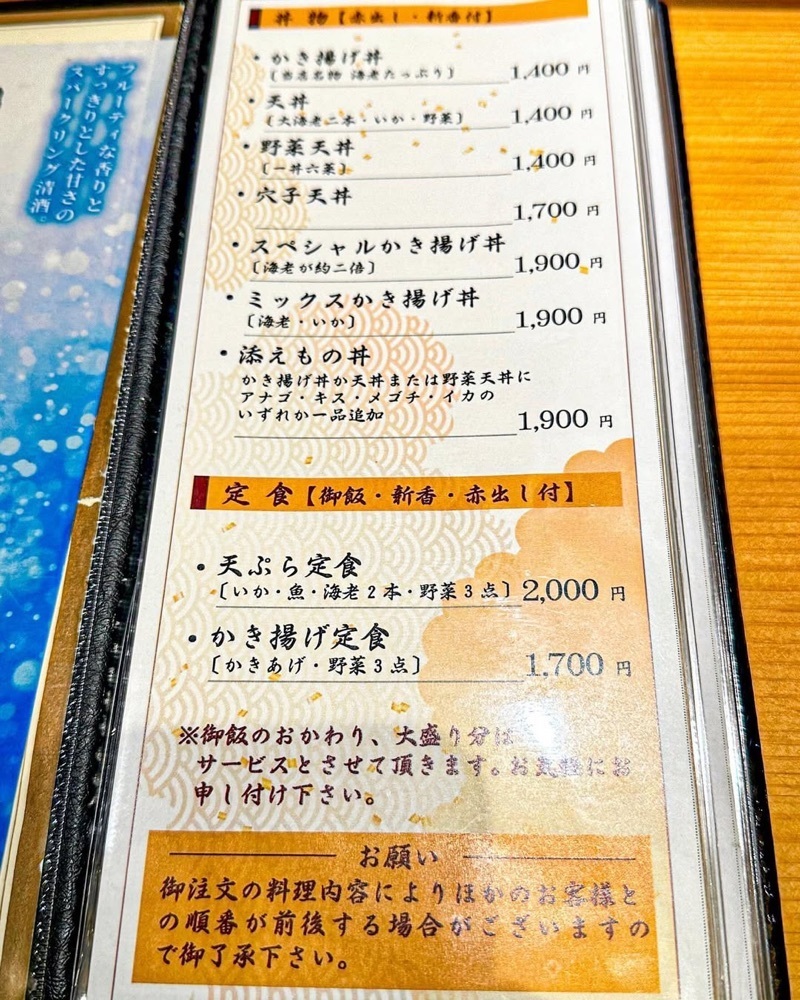 フルーティな香りと
すっきりとした甘さの
スパークリング清酒。
丼物【赤出し・新香付】
・かき揚げ丼
〔当店名物 海老たっぷり〕 1,400 円
・天丼
〔大海老二本・いか・野菜〕 1,400 円
・野菜天丼
〔一丼六菜〕 1,400 円
・穴子天丼
1,700 円
・スペシャルかき揚げ丼
〔海老が約二倍〕 1,900 円
・ミックスかき揚げ丼
〔海老・いか〕 1,900 円
・添えもの丼
かき揚げ丼か天丼または野菜天丼に
アナゴ・キス・メゴチ・イカの
いずれか一品追加 1,900 円
定食【御飯・新香・赤出し付】
・天ぷら定食
〔いか・魚・海老2本・野菜3点〕 2,000 円
・かき揚げ定食
〔かきあげ・野菜3点〕 1,700 円
※御飯のおかわり、大盛り分は
サービスとさせて頂きます。お気軽にお
申し付け下さい。
お願い
御注文の料理内容によりほかのお客様と
の順番が前後する場合がございますの
で御了承下さい。